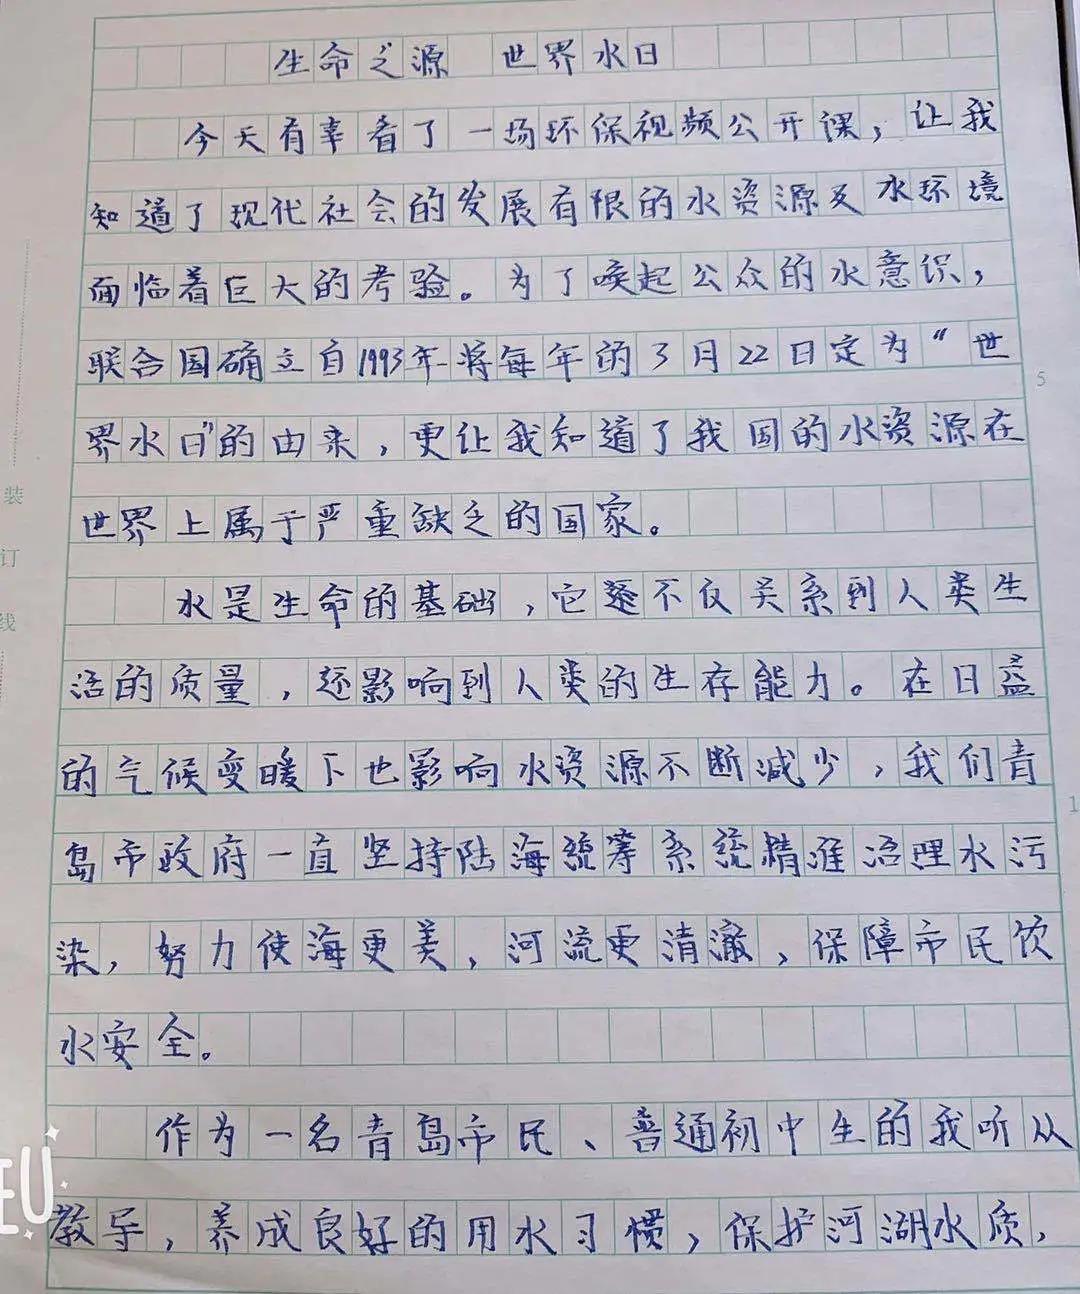 生命之源 世界水日
今天有幸看了一场环保视频公开课，让我
知道了现代社会的发展有限的水资源及水环境
面临着巨大的考验。为了唤起公众的水意识，
联合国确立自1993年将每年的3月22日定为“世
界水日”的由来，更让我知道了我国的水资源在
世界上属于严重缺乏的国家。
水是生命的基础，它不仅关系到人类生
活的质量，还影响到人类的生存能力。在日益
的气候变暖下也影响水资源不断减少，我们青
岛市政府一直坚持陆海统筹系统精准治理水污
染，努力使海更美，河流更清澈，保障市民饮
水安全。
作为一名青岛市民、普通初中生的我听从
教导，养成良好的用水习惯，保护河湖水质，
装
订
线
5
1
EU